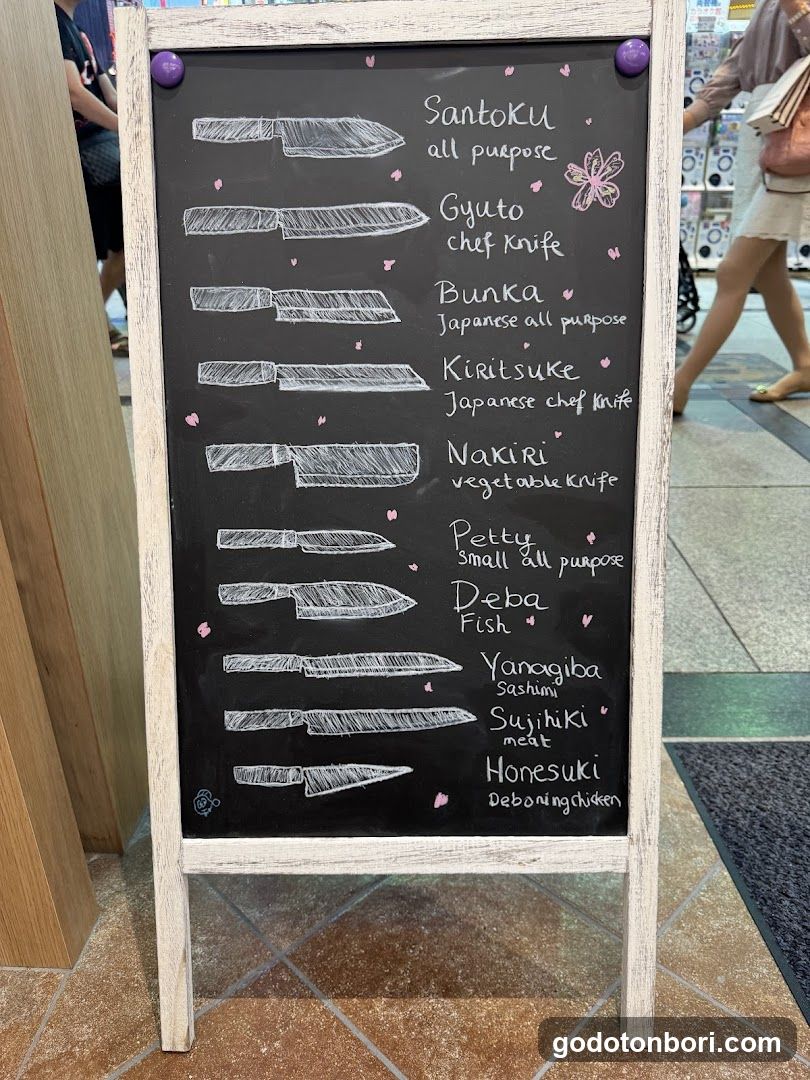 Santoku
all purpose
Gyuto
chef Knife
Bunka
Japanese all purpose
Kiritsuke
Japanese chef Knife
Nakiri
vegetable Knife
Petty
small all purpose
Deba
Fish
Yanagiba
Sashimi
Sujihiki
meat
Honesuki
Deboning chicken
godotonbori.com